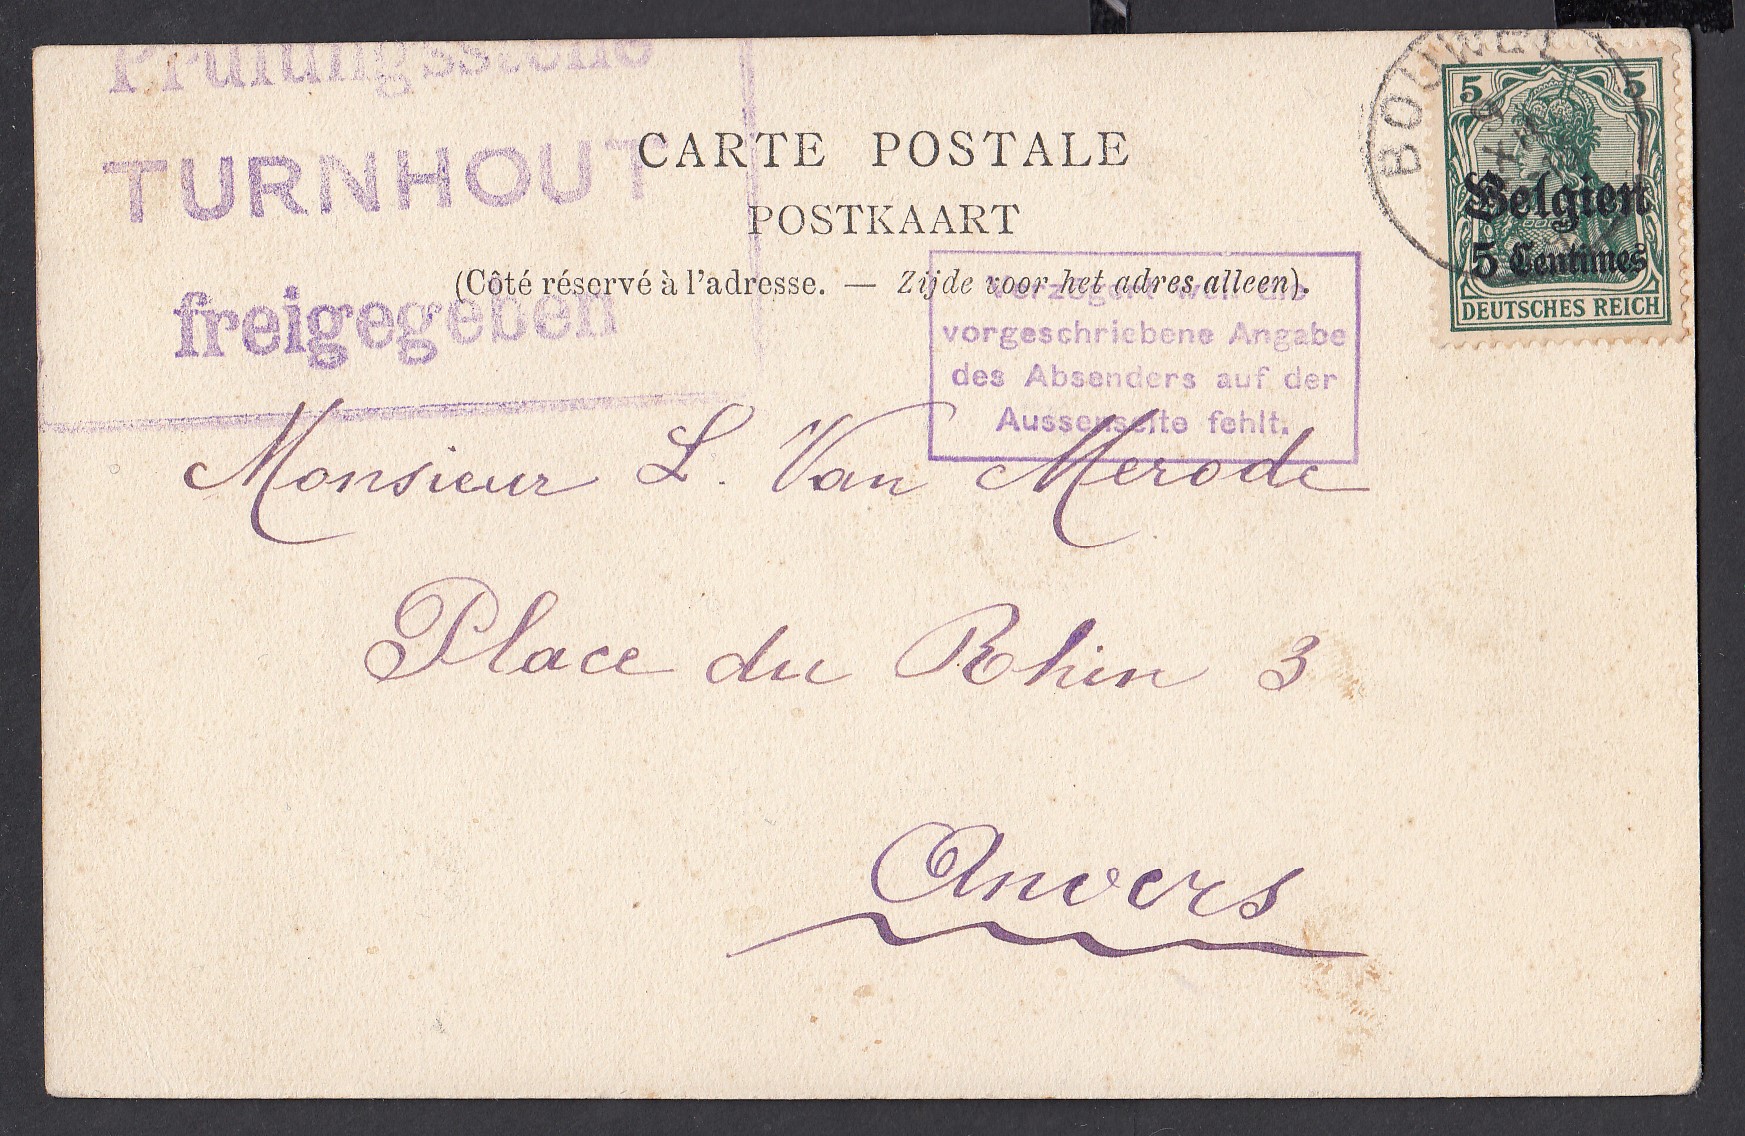 Prüfungsstelle
TURNHOUT
freigegeben
CARTE POSTALE
POSTKAART
(Côté réservé à l'adresse. — Zijde voor het adres alleen).
weil die
vorgeschriebene Angabe
des Absenders auf der
Aussenseite fehlt.
BOUWEL
5 5
Belgien
5 Centimes
DEUTSCHES REICH
Monsieur L. Van Merode
Place du Rhin 3
Anvers